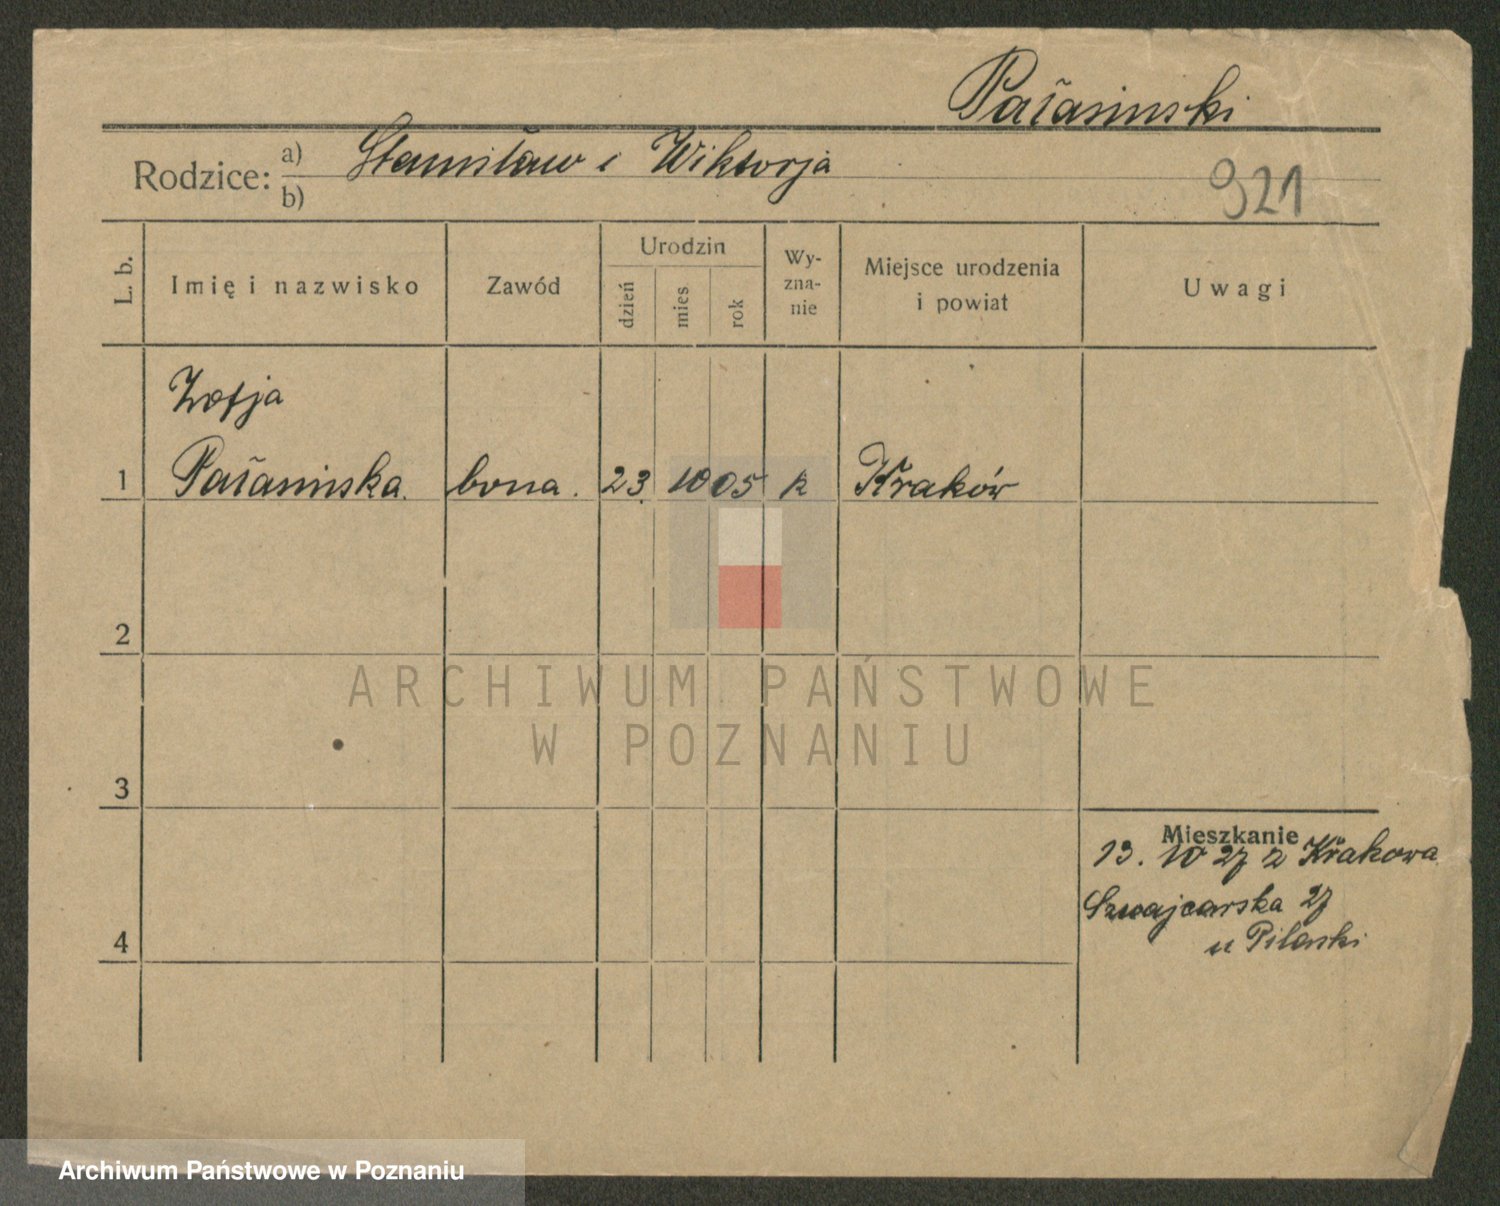 Pałasinski
Rodzice: a) Stanisław i Wiktorja
b)
921
L. b. Imię i nazwisko Zawód Urodzin dzień mies rok Wy-zna-nie Miejsce urodzenia i powiat Uwagi
Zofja
1 Pałasinska. bona. 23. 10 05 k Kraków
2
ARCHIWUM PAŃSTWOWE
W POZNANIU
3
Mieszkanie
13. 10 27 z Krakowa
Szwajcarska 27
4
u Pilarski
Archiwum Państwowe w Poznaniu